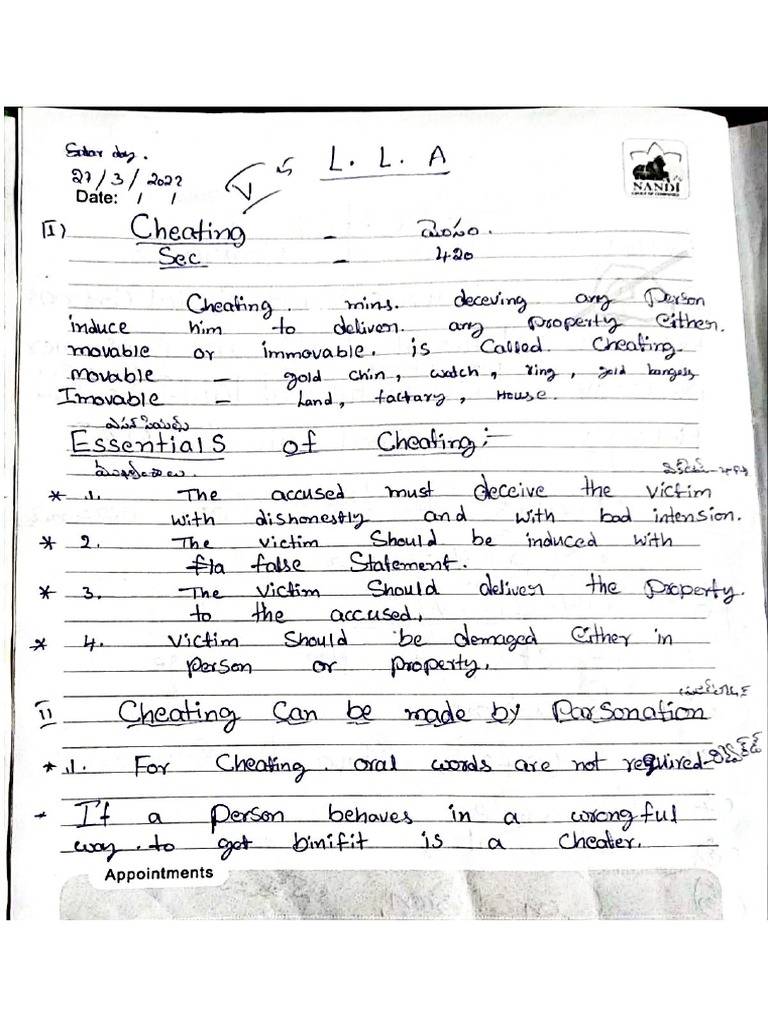 Satar day.
L. L. A
27/3/2022
NANDI
Date: / /
V
I) Cheating - మోసం.
Sec - 420
Cheating mins. deceving any Person
induce him to deliver. any property Either.
movable or immovable. is Called. Cheating.
movable - gold chin, watch, ring, gold bangess
Imovable - Land, factary, House.
Essentials of Cheating:-
* 1. The accused must deceive the victim
with dishonestly and with bad intension.
* 2. The victim Should be induced with
a false Statement.
* 3. The victim Should deliver the Property.
to the accused,
* 4. victim Should be demaged Either in
person or property.
II Cheating Can be made by Parsonation
* 1. For Cheating. oral words are not required-
* If a Person behaves in a wrongful
way. to got binifit is a cheater.
Appointments